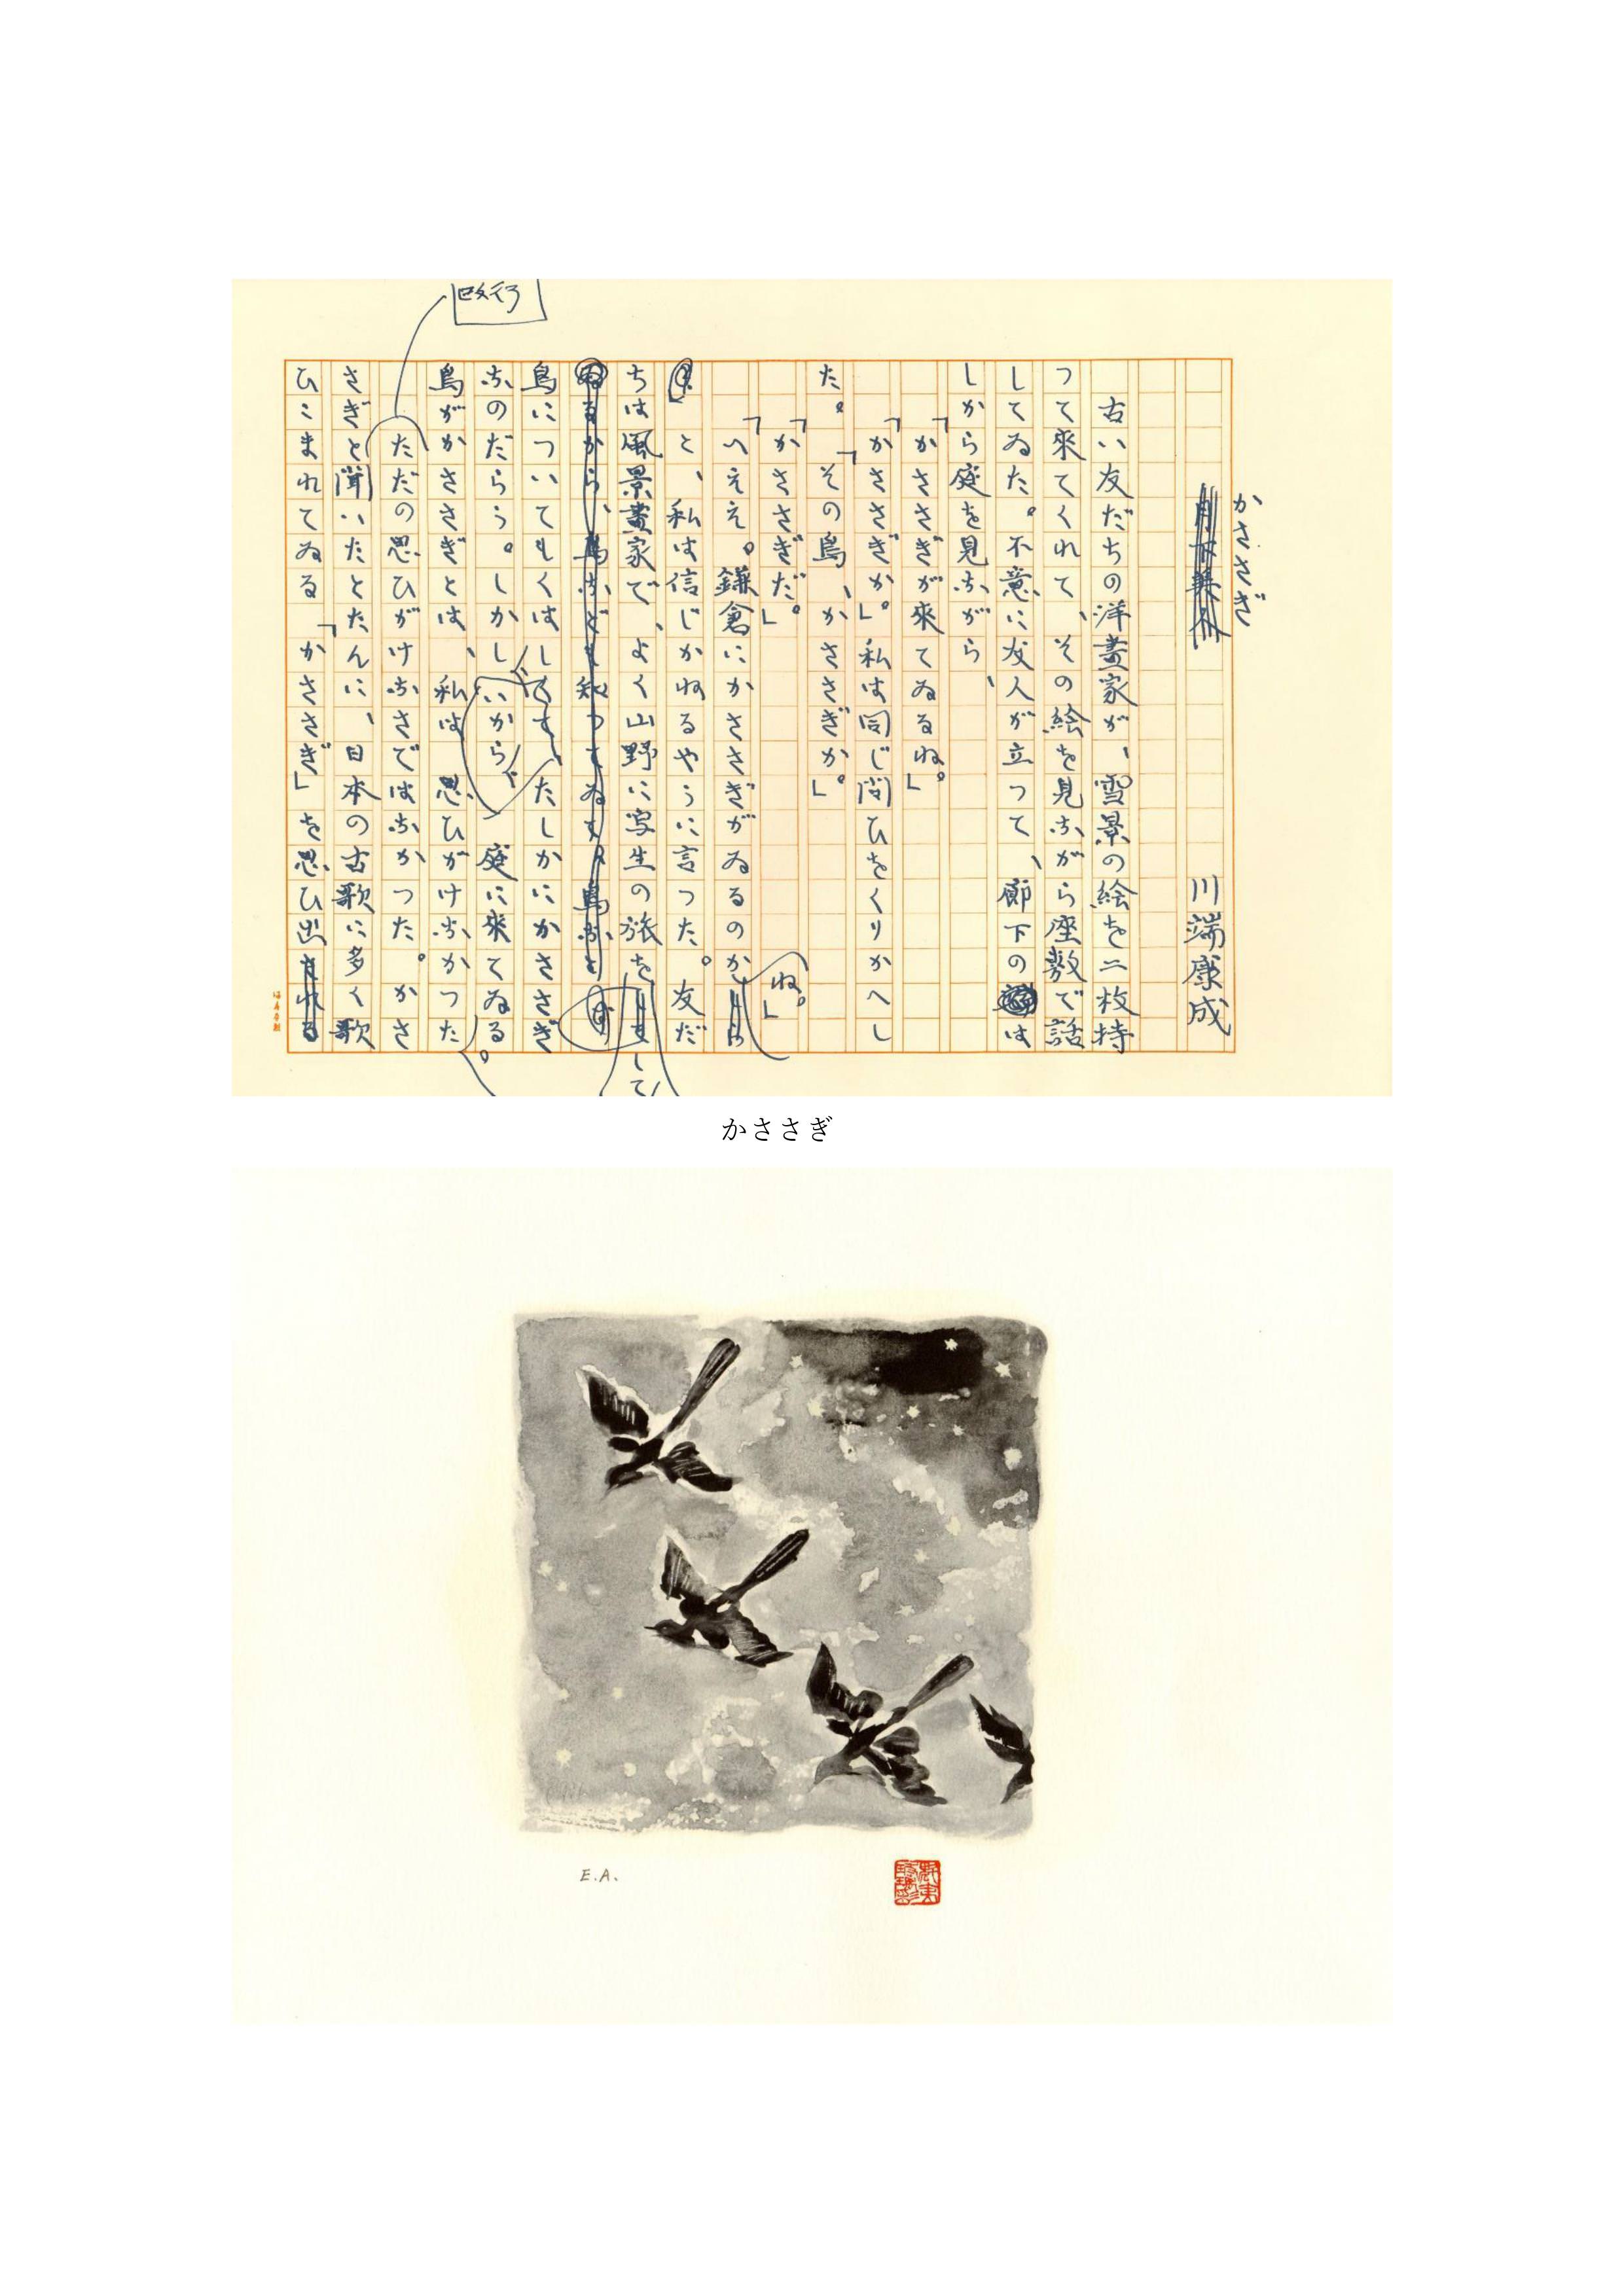 かささぎ
川端康成
古い友だちの洋畫家が、雪景の絵を二枚持
つて來てくれて、その絵を見ながら座敷で話
してゐた。不意に友人が立つて、廊下の は
しから庭を見ながら、
「かささぎが來てゐるね。」
「かささぎか。」私は同じ問ひをくりかへし
た。「その鳥、かささぎか。」
「かささぎだ。」
「へええ。鎌倉にかささぎがゐるのか
ね。」
と、私は信じかねるやうに言つた。友だ
ちは風景畫家で、よく山野に写生の旅を
して
ゐるから、鳥なども知つてゐす。鳥
鳥についてもくはし たしかにかささぎ
なのだらう。しかし いから、 庭に來てゐる。
鳥がかささぎとは、私は 思ひがけなかつた
改行
ただの思ひがけなさではなかつた。かさ
さぎと聞いたとたんに、日本の古歌に多く歌
ひこまれてゐる「かささぎ」を思ひ出
かささぎ
E.A.